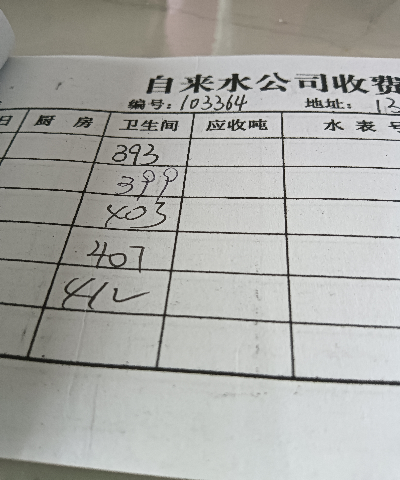 自来水公司收费
编号：103364 地址：13
日 厨房 卫生间 应收吨 水表号
393
399
403
407
412